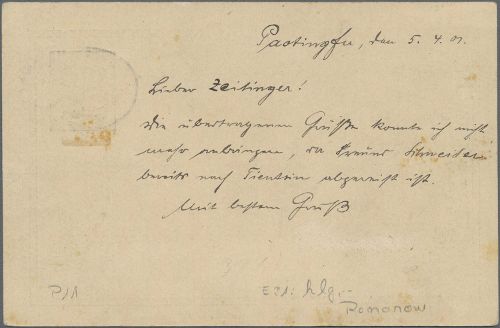 Paotingfu, den 5. 4. 01.
Lieber Zeitinger!
Die übertragenen Grüße konnte ich nicht
mehr anbringen, da Freund Schneider
bereits nach Tientsin abgereist ist.
Mit bestem Gruß
P/1
Romanow